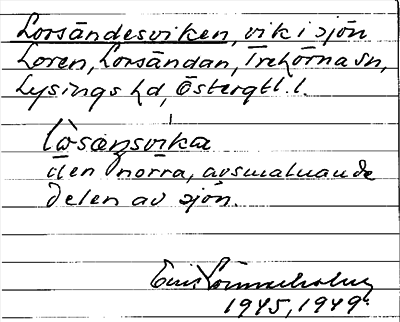 Lorsändesviken, vik i sjön
Loren, Lorsändan, Trehörna sn,
Lysings hd, Östergtl. l.
den norra, avsmalnande
delen av sjön.
1945, 1949.